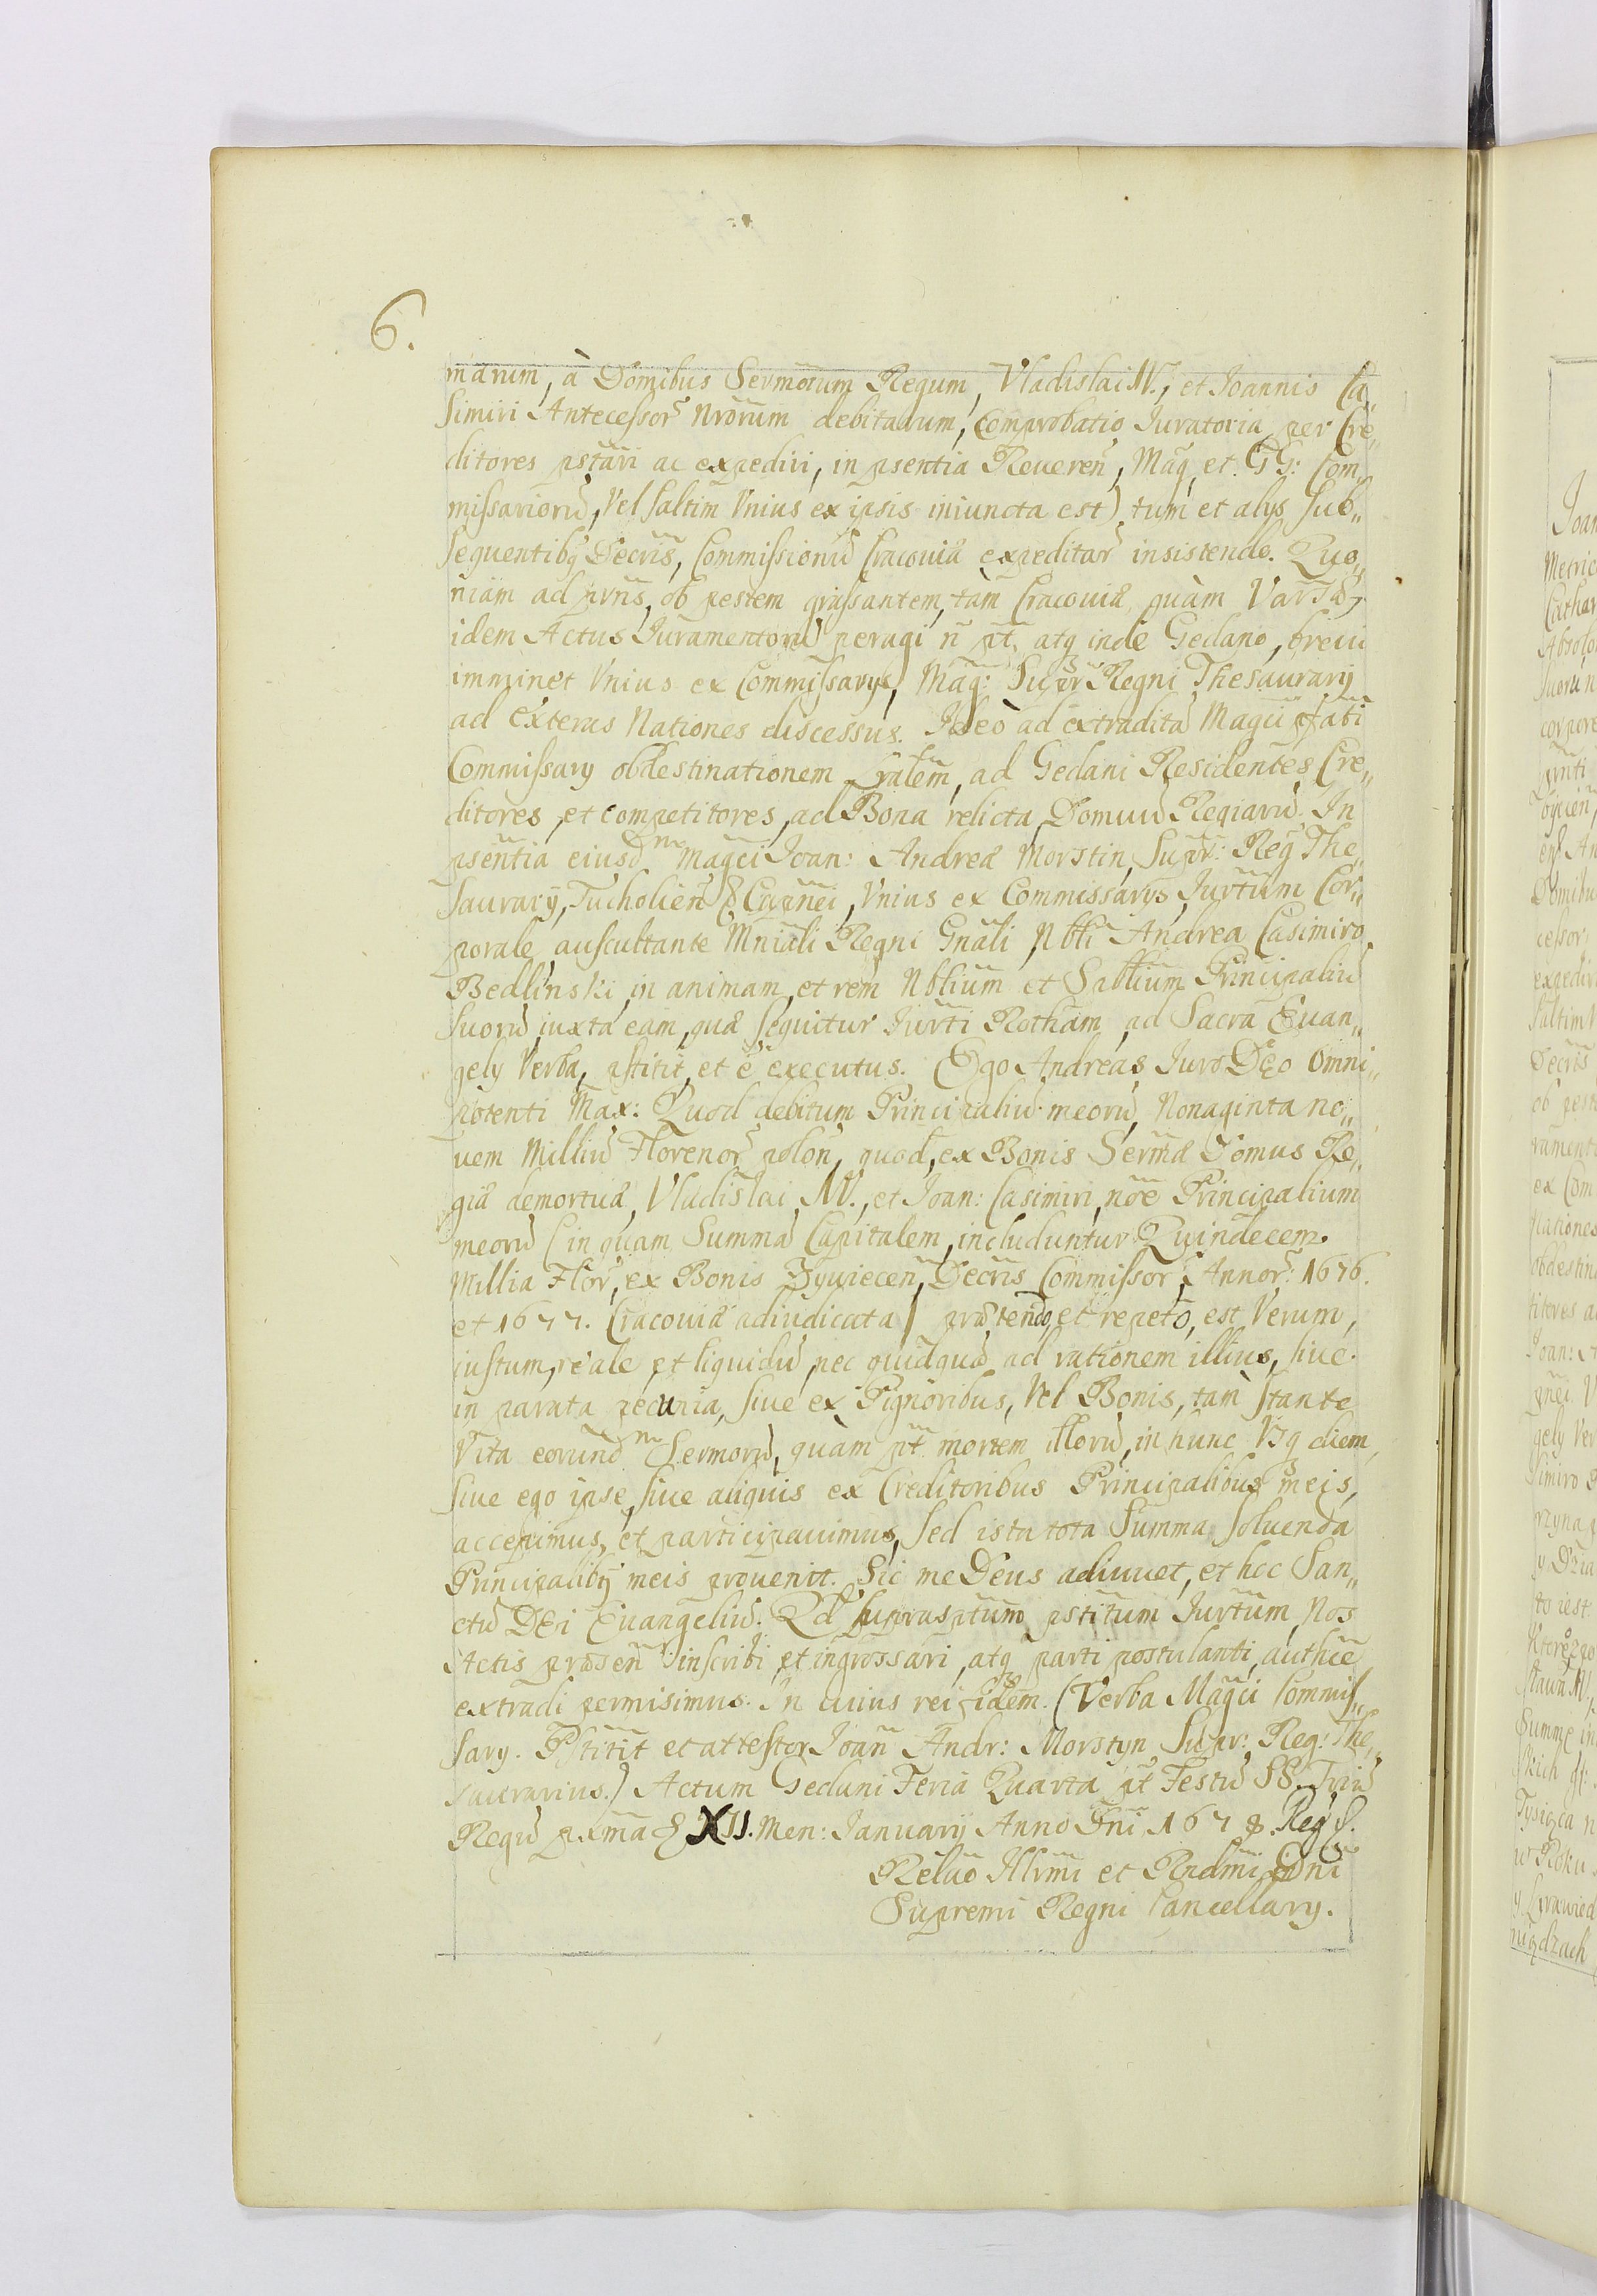 6.
marum, à Domibus Sermorum Regum, Vladislai IV., et Joannis Ca„
simiri Antecessor nrorum debitarum, Comprobatio Iuratoria per Cre„
ditores pstari ac expediri, in psentia Reueren, Mag, et GG: Com„
missarioru, Vel saltim Vnius ex ipsis iniuncta est) tum et alys sub„
sequentibq Decris, Commissionu Cracouiæ expeditar insistendo. Quo„
niam ad prns, ob pestem grassantem, tàm Cracouiæ, quàm Varsæ,
idem Actus Iuramentoru peragi n pt, atq inde Gedano, breui
imminet Vnius ex Commissarys, Mag: Supr Regni Thesaurarÿ
ad Exteras Nationes discessus. Ideò ad extradita Magci pfati
Commissary obdestinationem Lralem, ad Gedani Residentes Cre„
ditores, et competitores, ad Bona relicta Domuu Regiaru. In
psentia eiusdm Magci Joan: Andreæ Morstin, Supr: Reg The„
saurarÿ, Tucholien & Capnei, Vnius ex Commissarys, Iurtum Cor„
porale, auscultante Mniali Regni Gnali, Nbli Andrea Casimiro
Bedlinski, in animam, et rem Nblium et Spblium Principaliu
suoru, iuxta eam, quæ sequitur Iurti Rotham, ad Sacra Euan„
gely Verba, pstitit, et è executus. Ego Andreas Iuro DEo Omni„
potenti Max: Quod debitum Principaliu meoru, Nonaginta no„
uem Milliu Florenor polon, quod, ex Bonis Sermæ Domus Re„
giæ demortuæ, Vladislai IV., et Joan: Casimiri, noe Principalium
meoru (in quam Summa Capitalem, includuntur Quindecem
Millia Flor, ex Bonis Zywiecen, Decris Commissor, Annor: 1676.
et 1677. Cracouiæ adiudicata) prætendo, et repeto, est Verum,
iustum, reale, et liquidu, nec quidqua ad rationem illius, siue
in parata pecunia, siue ex Pignoribus, Vel Bonis, tàm stante
Vita eorundm Sermoru, quàm pt mortem illoru, in hunc Vsq diem,
siue ego ipse, siue aliquis ex Creditoribus Principalibus meis,
accepimus, et participauimus, sed ista tota Summa soluenda
Principalibq meis prouenit. Sic me Deus adiuuet, et hoc San„
ctu DEi Euangeliu. Qd suprasptum pstitum Iurtum, Nos
Actis præsen inscribi et ingrossari, atq parti postulanti, authce
extradi permisimus. In cuius rei fidem. (Verba Magci Commis„
sary. Pstitit et attestor Joan Andr: Morstyn Supr: Reg: The„
saurarius.) Actum Gedani Feria Quarta pt Festu SS. Triu
Regu pxma & XII. Men: Januarÿ Anno Dni 1678. Reg &.
Relao Illrmi et Rndmi Dni
Supremi Regni Cancellary.